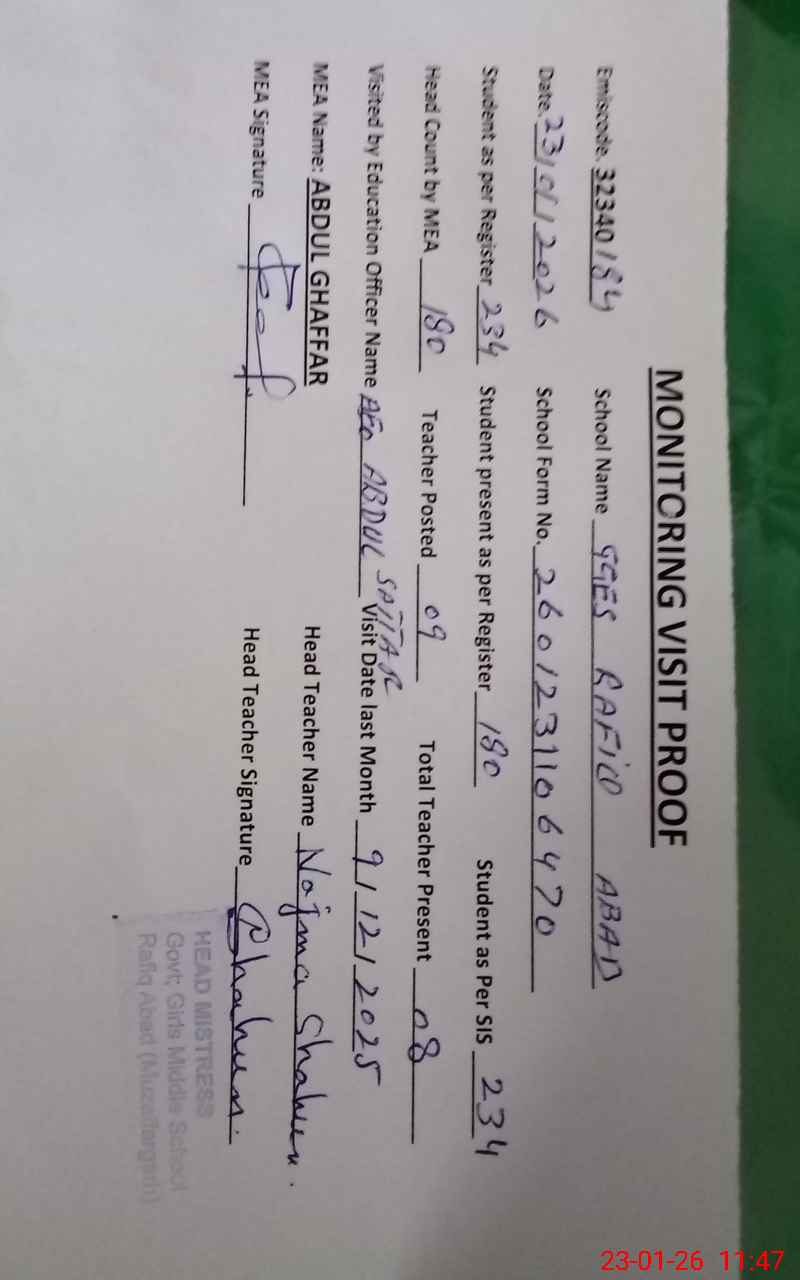 MONITORING VISIT PROOF
Emiscode. 32340184 School Name GGES RAFIQ ABAD
Date. 23/01/2026 School Form No. 2601231106470
Student as per Register 234 Student present as per Register 180 Student as Per SIS 234
Head Count by MEA 180 Teacher Posted 09 Total Teacher Present 08
Visited by Education Officer Name AEO ABDUL SATTAR Visit Date last Month 9/12/2025
MEA Name: ABDUL GHAFFAR Head Teacher Name Najma Shaheen.
MEA Signature Head Teacher Signature
HEAD MISTRESS
Govt; Girls Middle School
Rafiq Abad (Muzaffargarh)
23-01-26 11:47